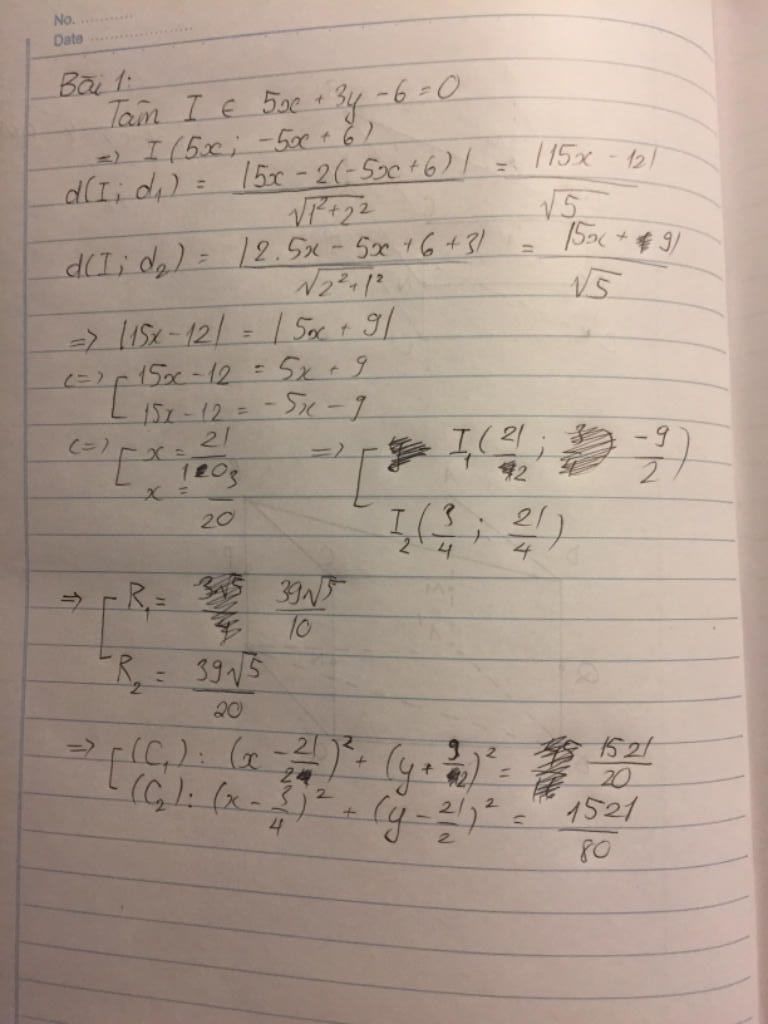 No. ............
Date .....................
Bài 1:
Tâm I ∈ 5x + 3y - 6 = 0
=> I (5x; -5x + 6)
d(I; d₁) = |5x - 2(-5x + 6)| / √(1² + 2²) = |15x - 12| / √5
d(I; d₂) = |2.5x - 5x + 6 + 3| / √(2² + 1²) = |5x + 9| / √5
=> |15x - 12| = |5x + 9|
<=> [ 15x - 12 = 5x + 9
15x - 12 = -5x - 9
<=> [ x = 21/10 => [ I₁(21/2; -9/2)
x = 3/20 I₂(3/4; 21/4)
=> [ R₁ = 39√5/10
R₂ = 39√5/20
=> [ (C₁): (x - 21/2)² + (y + 9/2)² = 1521/20
(C₂): (x - 3/4)² + (y - 21/2)² = 1521/80